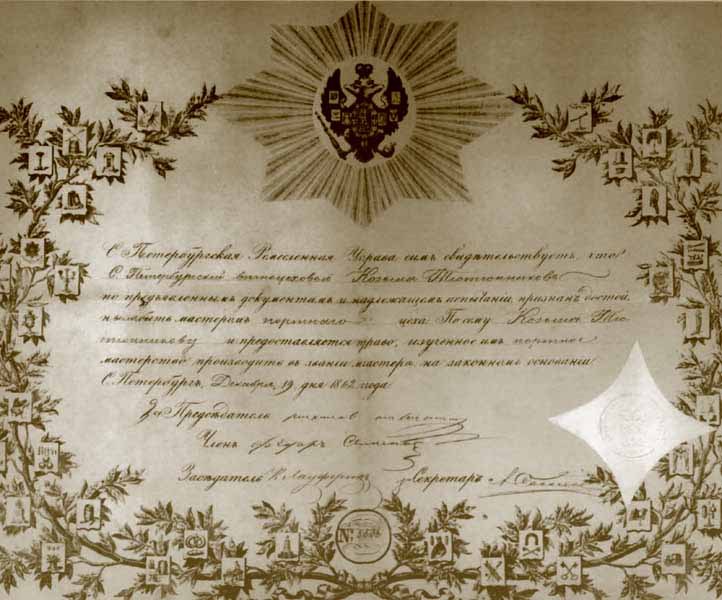 С. Петербургская Ремесленная Управа симъ свидѣтельствуетъ, что
С. Петербургскій вѣчноцеховой Козьма
по предъявленнымъ документамъ и надлежащемъ испытаніи, признанъ достой
нымъ быть мастеромъ портнаго цеха. По сему Козьмѣ
и предоставляется право, изученное имъ портное
мастерство производить въ званіи мастера, на законномъ основаніи
С. Петербургъ, Декабря 19 дня 1862 года
За Предсѣдатель
Членъ Федоръ
Засѣдатель Секретарь
№